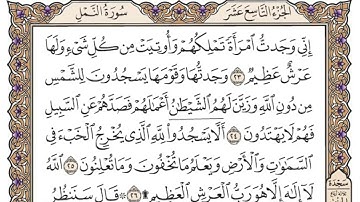 الجزء التاسع عشر
سورة النمل
إِنِّى وَجَدتُّ ٱمْرَأَةً تَمْلِكُهُمْ وَأُوتِيَتْ مِن كُلِّ شَىْءٍ وَلَهَا
عَرْشٌ عَظِيمٌ ٢٣ وَجَدتُّهَا وَقَوْمَهَا يَسْجُدُونَ لِلشَّمْسِ
مِن دُونِ ٱللَّهِ وَزَيَّنَ لَهُمُ ٱلشَّيْطَٰنُ أَعْمَٰلَهُمْ فَصَدَّهُمْ عَنِ ٱلسَّبِيلِ
فَهُمْ لَا يَهْتَدُونَ ٢٤ أَلَّا يَسْجُدُوا۟ لِلَّهِ ٱلَّذِى يُخْرِجُ ٱلْخَبْءَ فِى
ٱلسَّمَٰوَٰتِ وَٱلْأَرْضِ وَيَعْلَمُ مَا تُخْفُونَ وَمَا تُعْلِنُونَ ٢٥
ٱللَّهُ لَآ إِلَٰهَ إِلَّا هُوَ رَبُّ ٱلْعَرْشِ ٱلْعَظِيمِ ۩ ٢٦ قَالَ سَنَنظُرُ
سجدة